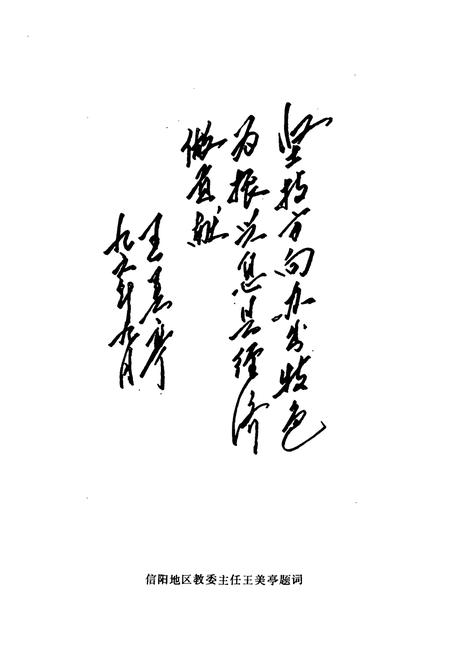 坚持方向办出特色
为振兴息县经济
做贡献
王美亭
九六年九月
信阳地区教委主任王美亭题词